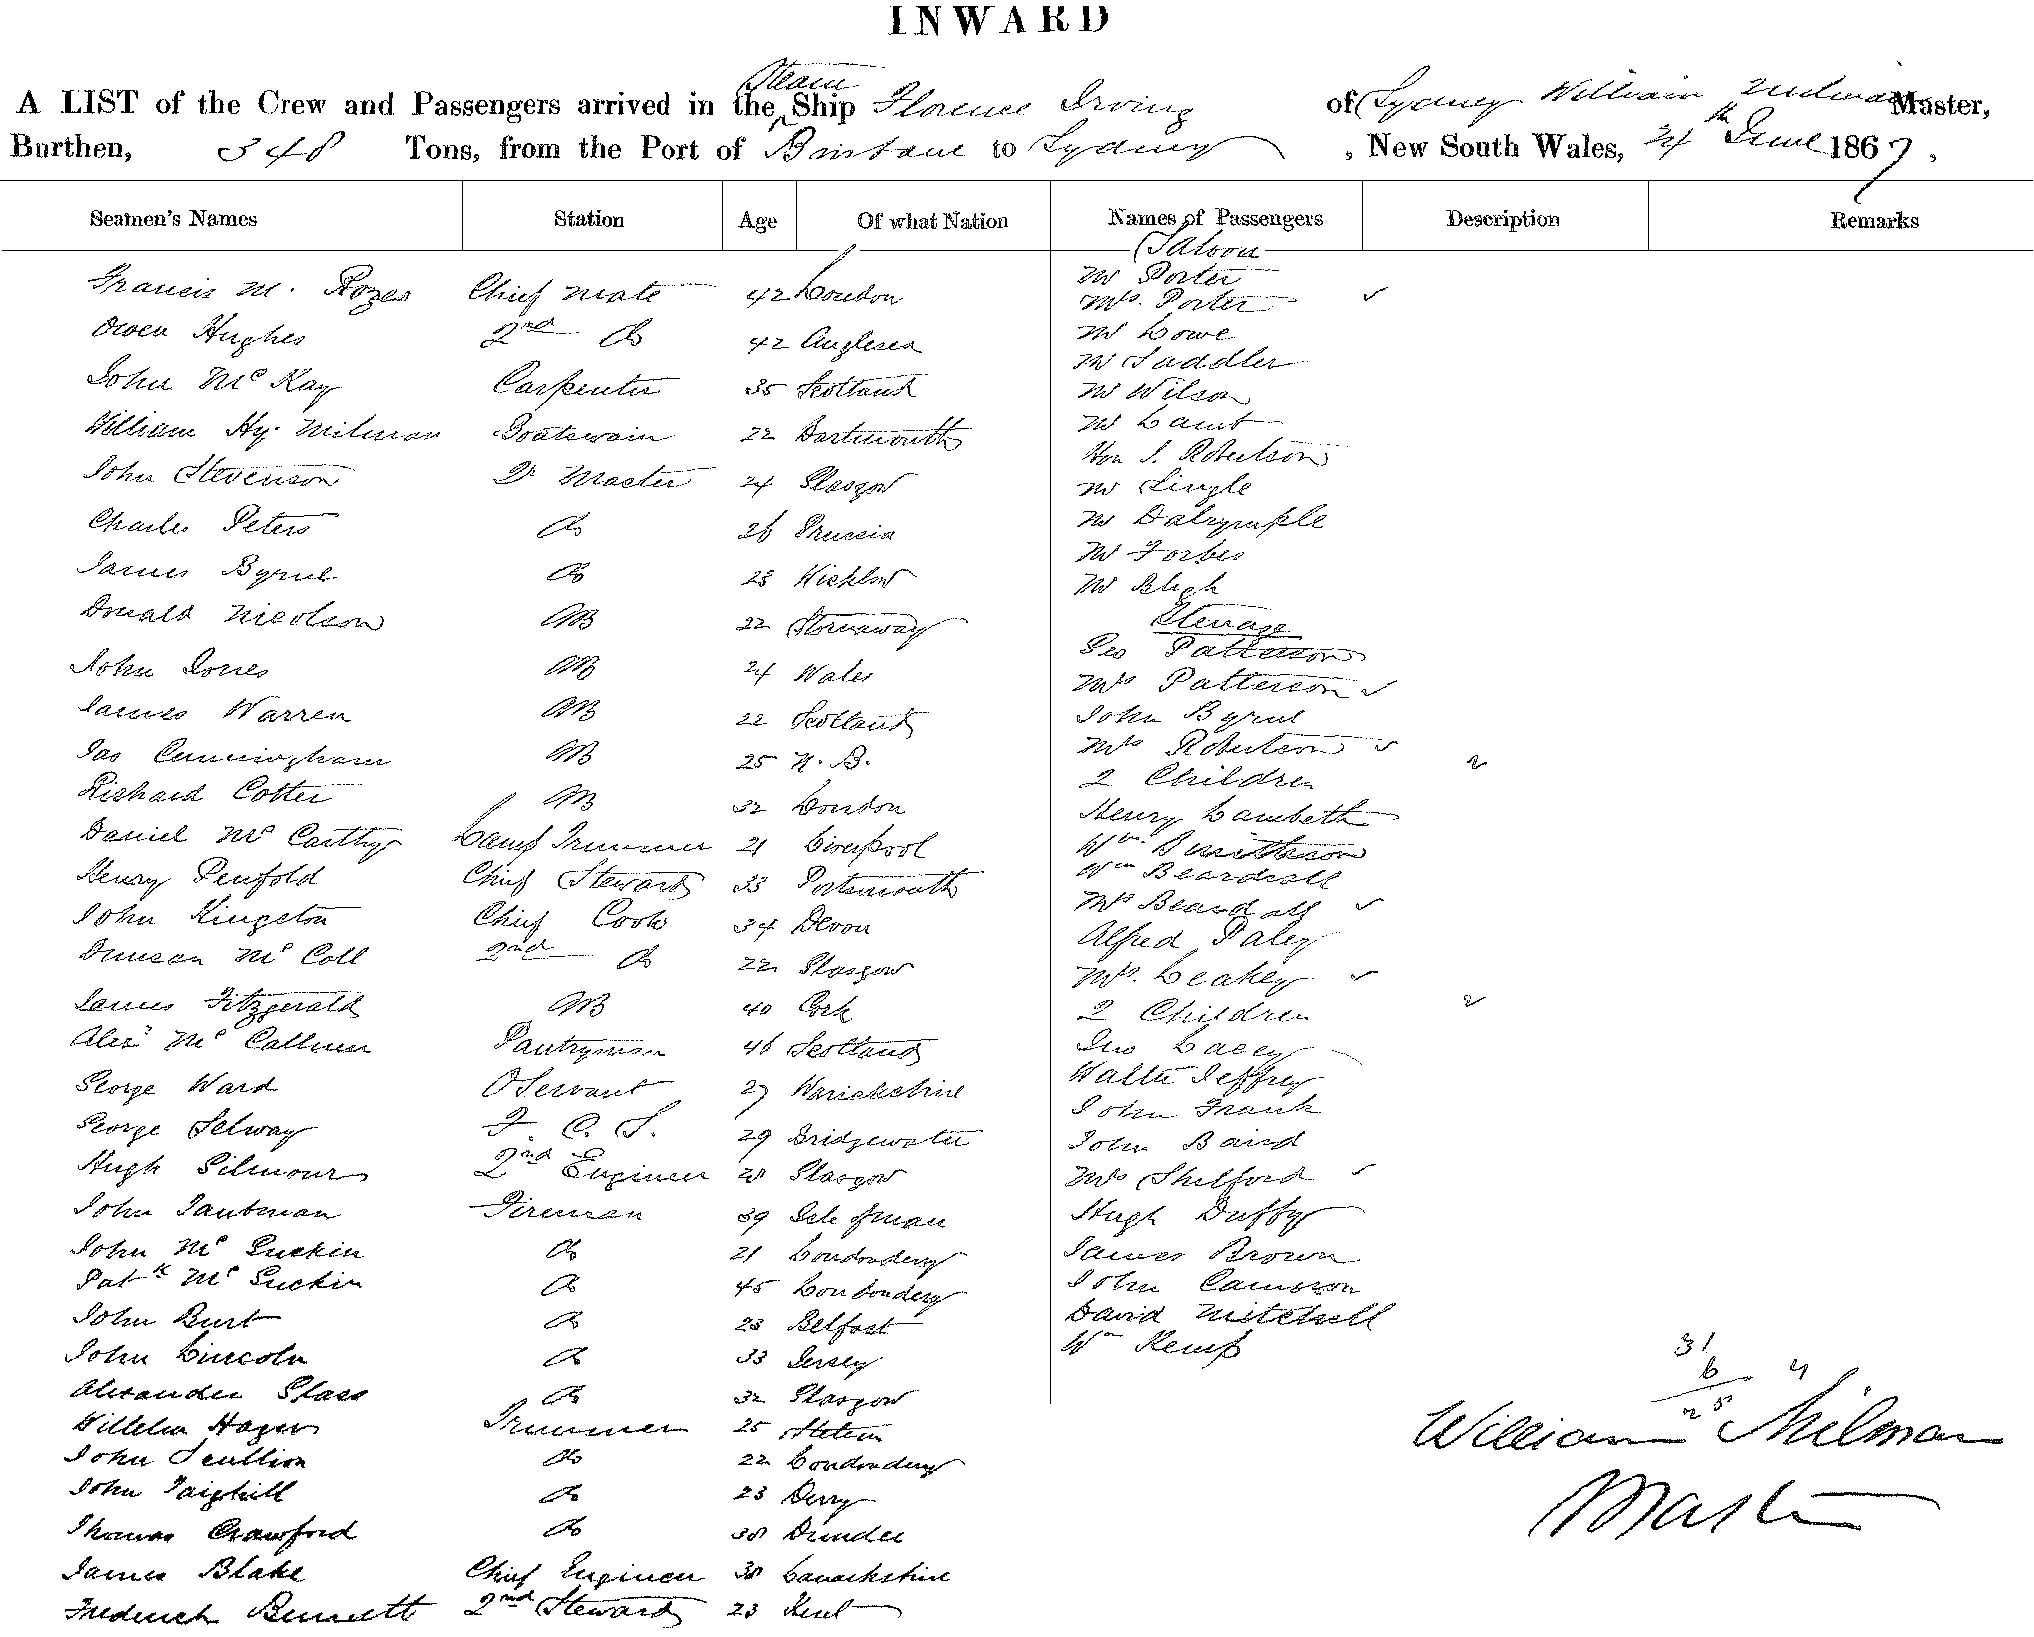 INWARD
A LIST of the Crew and Passengers arrived in the Steam Ship Florence Irving of Sydney William Milman Master,
Burthen, 348 Tons, from the Port of Brisbane to Sydney, New South Wales, 24th June 1867,
Seamen's Names Station Age Of what Nation Names of Passengers Description Remarks
Saloon
Francis M. Chief Mate 42 London
Mr Porter
Mrs. Porter ✓
Owen Hughes 2nd Do 42 Anglesea
Mr Lowe
Mr Saddler
John McKay Carpenter 35 Scotland
Mr Wilson
William Hy. Milman Boatswain 22 Dartmouth
Mr Lamb
Hon J. Robertson
John Stevenson Qr Master 24 Glasgow
Mr Lingle
Charles Peters Do 26 Prussia
Mr Dalrymple
Mr Forbes
James Byrne Do 23 Wicklow
Mr Bligh
Donald Nicolson AB 22 Stornaway
Steerage
Geo Patterson
John Jones AB 24 Wales
Mrs Patterson ✓
James Warren AB 22 Scotland
John Byrne
Jas Cunningham AB 25 N.B.
Mrs Robertson ✓
2 Children 2
Richard Cotter AB 32 London
Henry Lambeth
Daniel McCarthy Lamp Trimmer 21 Liverpool
Wm
Henry Penfold Chief Steward 33 Portsmouth
Wm Beardsall
John Kingston Chief Cook 34 Devon
Mrs Beardsall ✓
Alfred Paley
Duncan McColl 2nd Do 22 Glasgow
Mrs. Leakey ✓
James Fitzgerald AB 40 Cork
2 Children 2
Alexr McCallum Pantryman 46 Scotland
Jno Lacey
George Ward O Servant 27 Warickshire
Walter Jeffrey
John Frank
George Selway F. C. S. 29 Bridgewater
John Baird
Hugh Gilmour 2nd Engineer 28 Glasgow
Mrs Shelford ✓
John Tautman Fireman 39 Isle of Man
Hugh Duffy
John McGuckin Do 21 Londonderry
James Brown
Patk McGuckin Do 45 Londonderry
John Cameron
John Burt Do 23 Belfast
David Mitchell
John Lincoln Do 33 Jersey
Wm Kemp
31
6 4
25
Alexander Glass Do 32 Glasgow
Wilhelm Hager Trimmer 25 Stetein
William Milman
John Scullion Do 22 Londonderry
John Taighill Do 23 Derry
Master
Thomas Crawford Do 38 Dundee
James Blake Chief Engineer 38 Lanarkshire
Frederick Bennett 2nd Steward 23 Kent